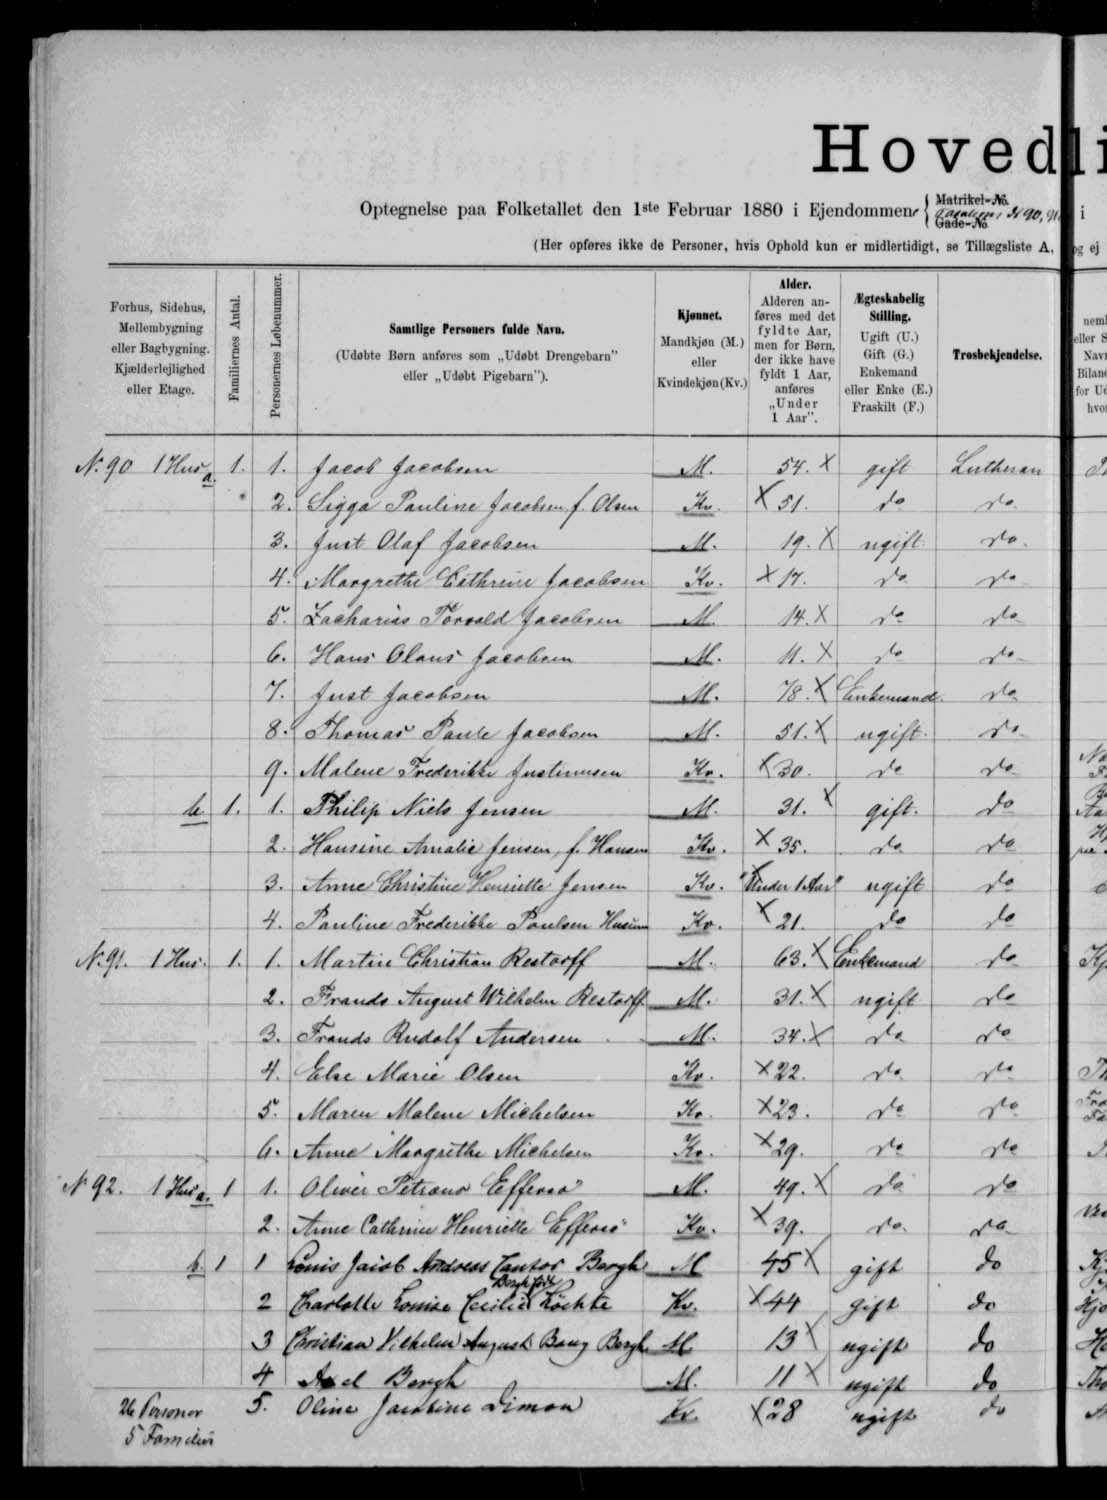 Hovedli
Optegnelse paa Folketallet den 1ste Februar 1880 i Ejendommen Matrikel-No. Gade-No. N 90, 91 i
(Her opføres ikke de Personer, hvis Ophold kun er midlertidigt, se Tillægsliste A, og ej
Forhus, Sidehus, Mellembygning eller Bagbygning. Kjælderlejlighed eller Etage.
Familiernes Antal.
Personernes Løbenummer.
Samtlige Personers fulde Navn.
(Udøbte Børn anføres som „Udøbt Drengebarn" eller „Udøbt Pigebarn").
Kjønnet.
Mandkjøn (M.) eller Kvindekjøn (Kv.)
Alder.
Alderen anføres med det fyldte Aar, men for Børn, der ikke have fyldt 1 Aar, anføres „Under 1 Aar".
Ægteskabelig Stilling.
Ugift (U.) Gift (G.) Enkemand eller Enke (E.) Fraskilt (F.)
Trosbekjendelse.
N. 90 1 Hus a. 1. 1. Jacob Jacobsen M. 54. X gift Lutheran
2. Sigga Pauline Jacobsen f. Olsen Kv. X 51. do do
3. Just Olaf Jacobsen M. 19. X ugift do.
4. Margrethe Cathrine Jacobsen Kv. X 17. do do
5. Zacharias Torvald Jacobsen M. 14. X do do
6. Hans Olaus Jacobsen M. 11. X do do
7. Just Jacobsen M. 78. X Enkemand. do
8. Thomas Paule Jacobsen M. 51. X ugift. do
9. Malene Frederikke Justinusen Kv. X 30. do do
b. 1. 1. Philip Niels Jensen M. 31. X gift. do
2. Hansine Amalie Jensen, f. Hansen Kv. X 35. do do
3. Anne Christine Henriette Jensen Kv. "Under 1 Aar" ugift do
4. Pauline Frederikke Poulsen Husum Kv. X 21. do do
N. 91. 1 Hus. 1. 1. Martin Christian Restorff M. 63. X Enkemand do
2. Frands August Wilhelm Restorff M. 31. X ugift do
3. Frands Rudolf Andersen M. 34. X do do
4. Else Marie Olsen Kv. X 22. do do
5. Maren Malene Michelsen Kv. X 23. do do
6. Anne Margrethe Michelsen Kv. X 29. do do
N 92. 1 Hus a. 1 1. Oliver Petræus Effersø M. 49. X do do
2. Anne Cathrine Henriette Effersø Kv. X 39. do do
b. 1 1 Louis Jacob Andreas Cantor Bergh M 45 X gift do
Bergh født
2 Charlotte Louise Cecilie Løchte Kv. X 44 gift do
3 Christian Vilhelm August Bang Bergh M 13 X ugift do
4 Axel Bergh M. 11 X ugift do
5. Oline Jacobine Dimon Kv. X 28 ugift do
26 Personer
5 Familier